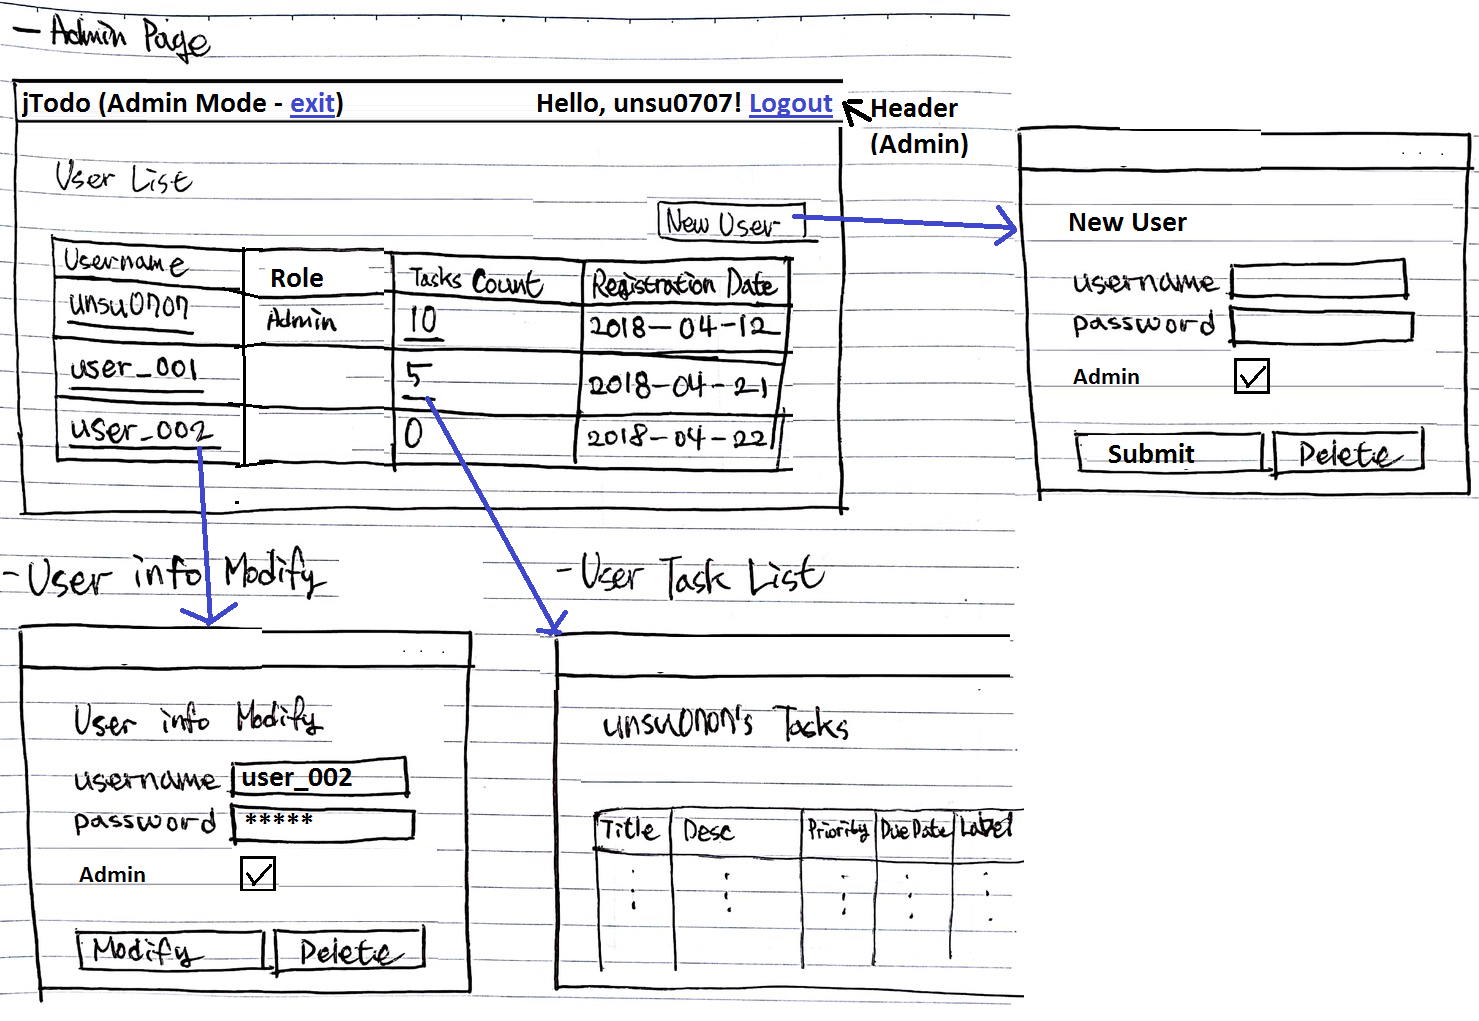 - Admin Page
jTodo (Admin Mode - exit) Hello, unsu0707! Logout
Header
(Admin)
User List
New User
Username Role Tasks Count Registration Date
unsu0707 Admin 10 2018-04-12
user_001 5 2018-04-21
user_002 0 2018-04-22
New User
username
password
Admin
Submit Delete
- User info Modify
User info Modify
username user_002
password *****
Admin
Modify Delete
- User Task List
unsu0707's Tasks
Title Desc Priority Due Date Label